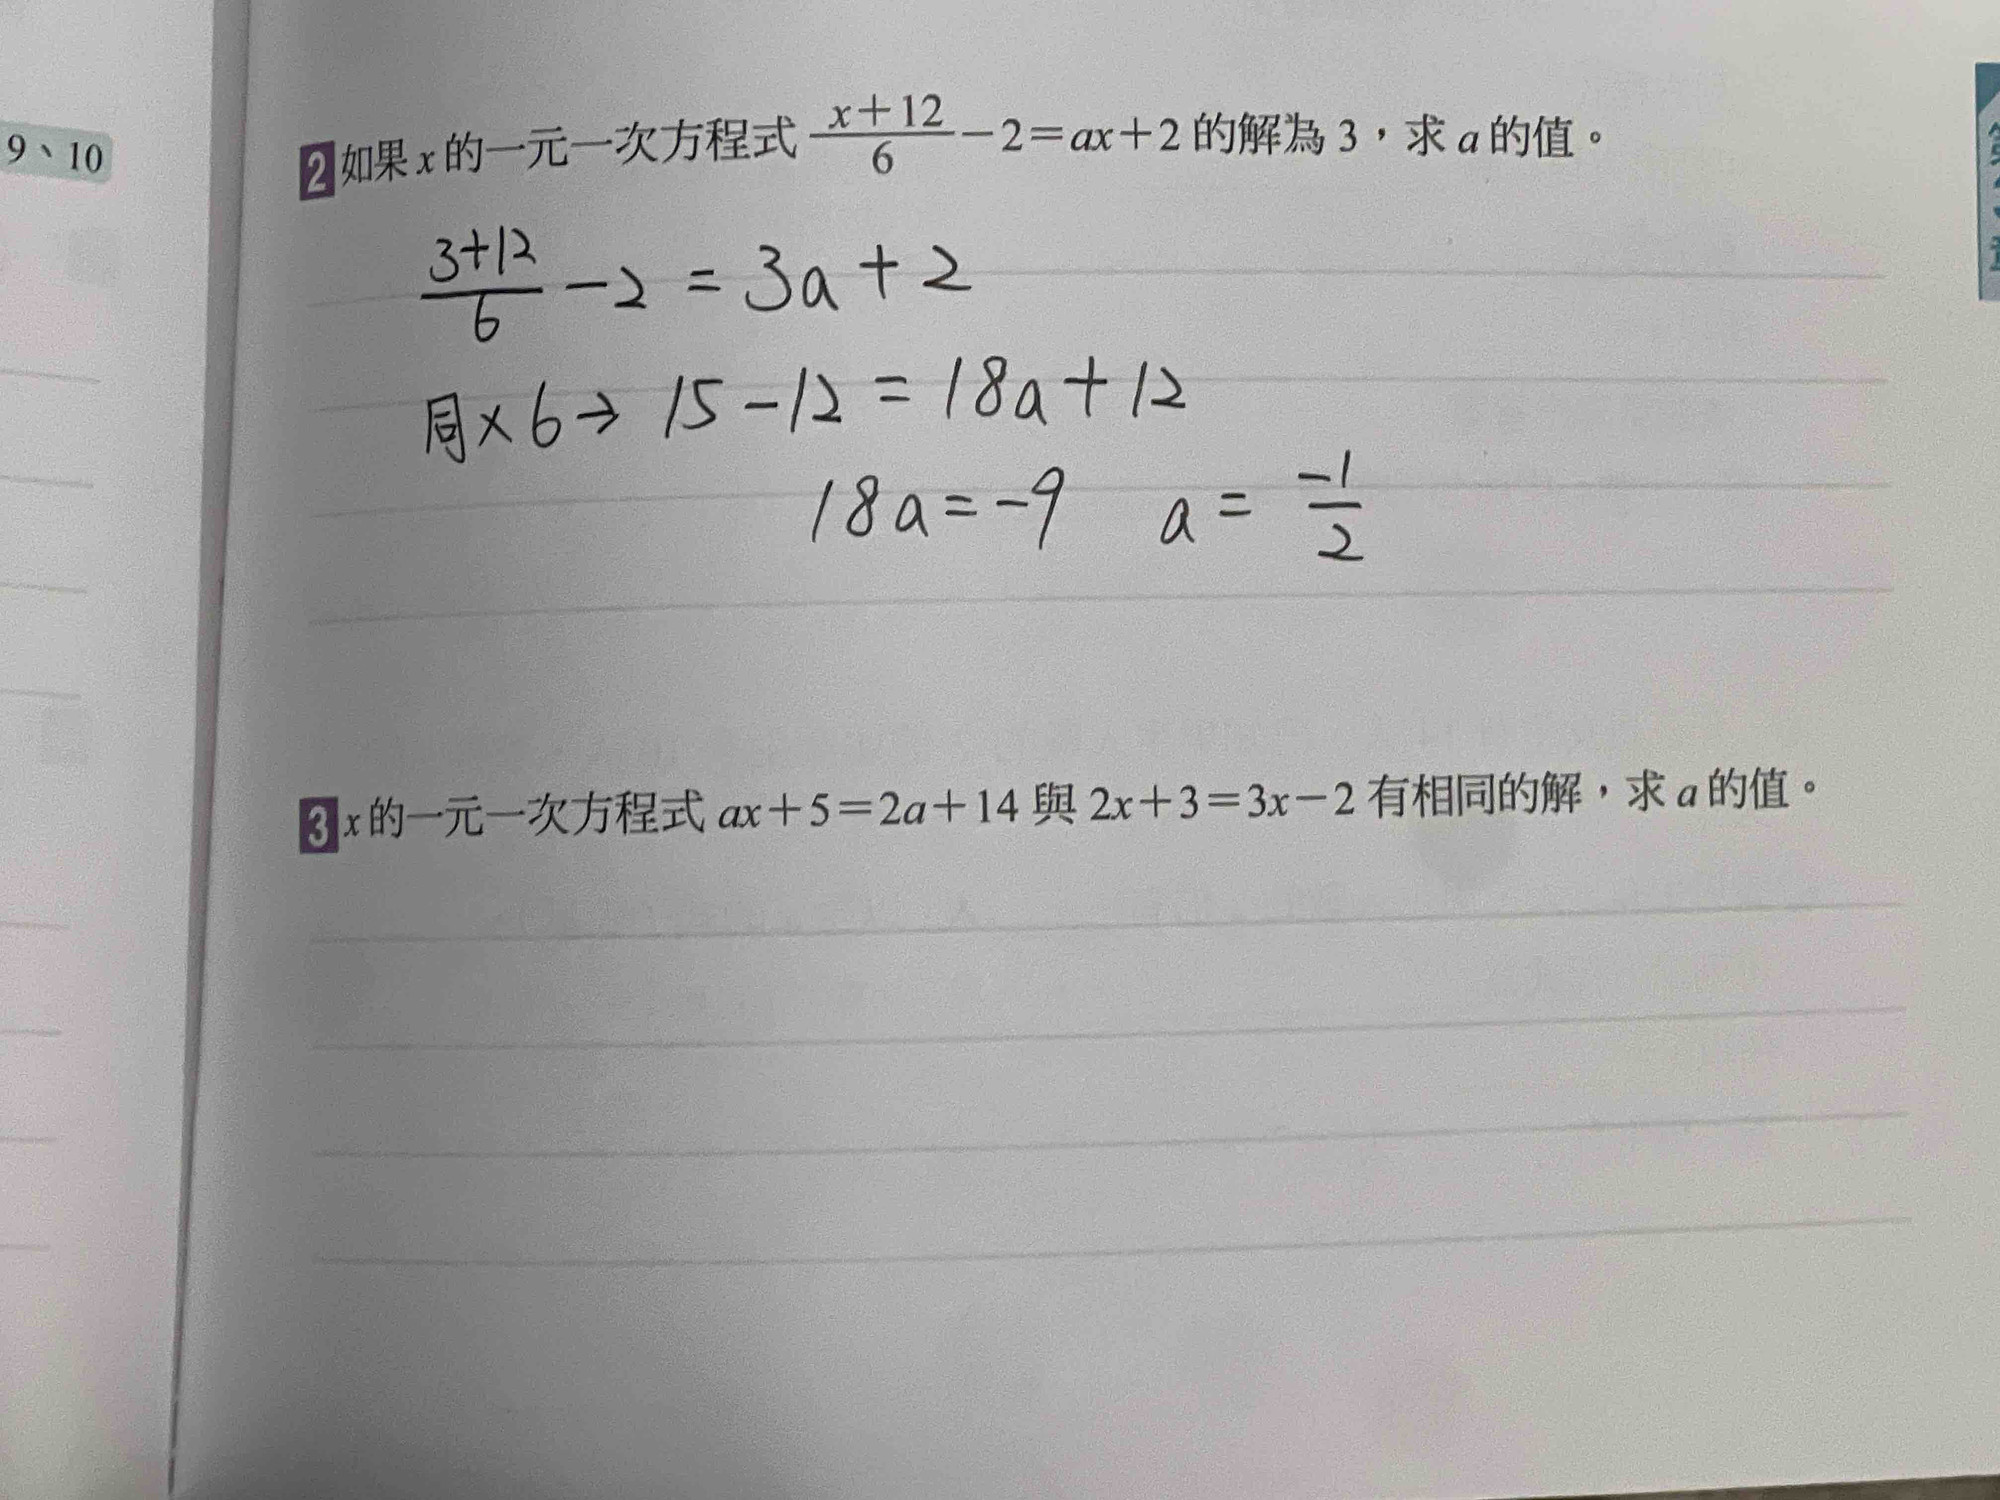 9、10
2 如果 x 的一元一次方程式 \frac{x+12}{6}－2＝ax＋2 的解為 3，求 a 的值。
\frac{3+12}{6} - 2 = 3a + 2
同×6→ 15 - 12 = 18a + 12
18a = -9  a = \frac{-1}{2}
3 x 的一元一次方程式 ax＋5＝2a＋14 與 2x＋3＝3x－2 有相同的解，求 a 的值。